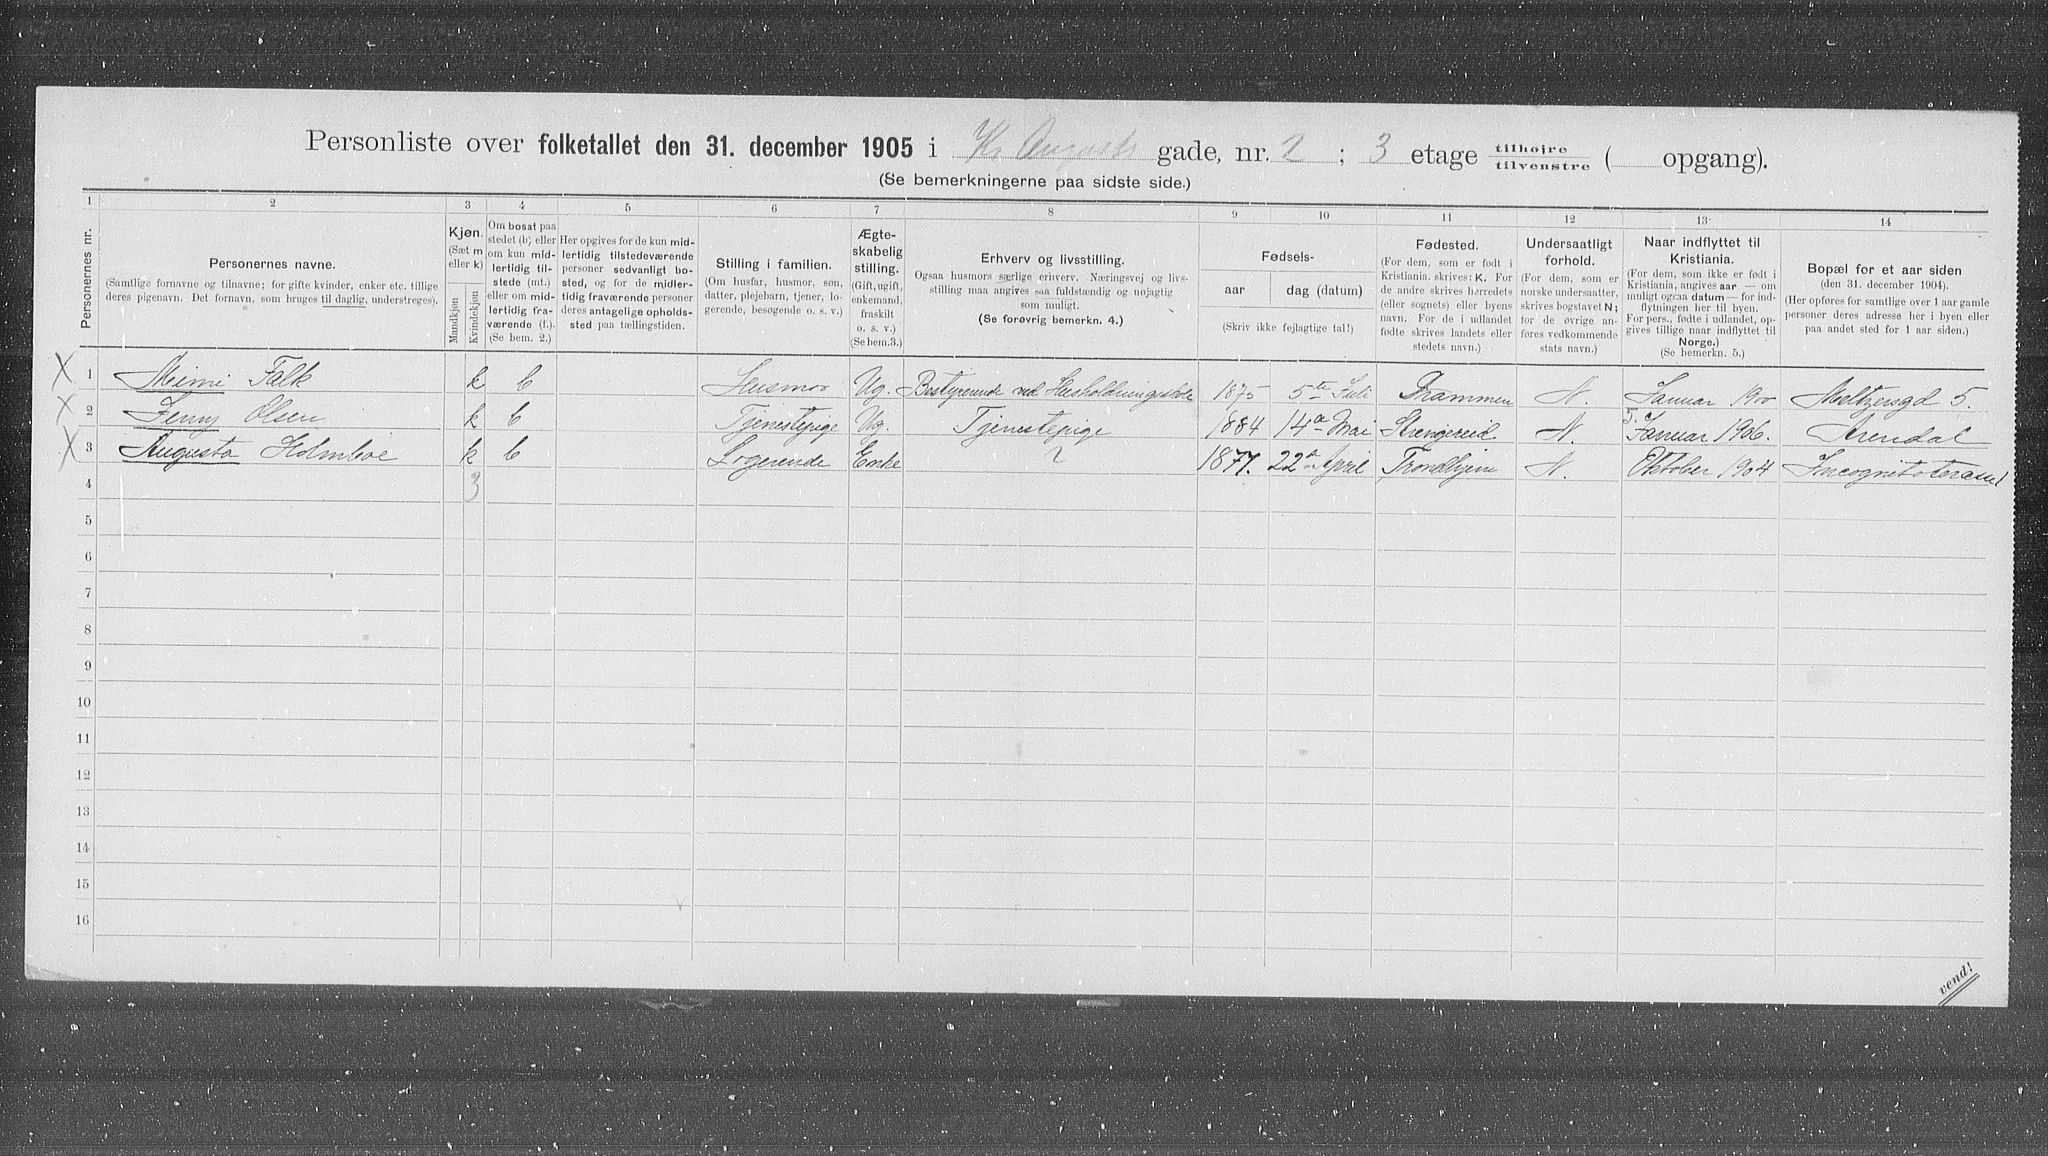 Personliste over folketallet den 31. december 1905 i Kr. Augusts gade, nr. 2 ; 3 etage tilhøjre tilvenstre ( opgang).
(Se bemerkningerne paa sidste side.)
1 2 3 4 5 6 7 8 9 10 11 12 13 14
Personernes nr.
Personernes navne.
(Samtlige fornavne og tilnavne; for gifte kvinder, enker etc. tillige
deres pigenavn. Det fornavn, som bruges til daglig, understreges).
Kjøn.
(Sæt m
eller k)
Mandkjøn
Kvindekjøn
Om bosat paa
stedet (b) eller
om kun mid-
lertidig til-
stede (mt.)
eller om mid-
lertidig fra-
værende (f.).
(Se bem. 2.)
Her opgives for de kun mid-
lertidig tilstedeværende
personer sedvanligt bo-
sted, og for de midler-
tidig fraværende personer
deres antagelige opholds-
sted paa tællingstiden.
Stilling i familien.
(Om husfar, husmor, søn,
datter, plejebarn, tjener, lo-
gerende, besøgende o. s. v.)
Ægte-
skabelig
stilling.
(Gift, ugift,
enkemand,
fraskilt
o. s. v.)
(Se bem.3.)
Erhverv og livsstilling.
Ogsaa husmors særlige erhverv. Næringsvej og livs-
stilling maa angives saa fuldstændig og nøjagtig
som muligt.
(Se forøvrig bemerkn. 4.)
Fødsels-
aar
dag (datum)
(Skriv ikke fejlagtige tal!)
Fødested.
(For dem, som er født i
Kristiania, skrives: K. For
de andre skrives herredets
(eller sognets) eller byens
navn. For de i udlandet
fødte skrives landets eller
stedets navn.)
Undersaatligt
forhold.
(For dem, som er
norske undersaatter,
skrives bogstavet N;
for de øvrige an-
føres vedkommende
stats navn.)
Naar indflyttet til
Kristiania.
(For dem, som ikke er født i
Kristiania, angives aar — om
muligt ogsaa datum — for ind-
flytningen her til byen.
For pers., fødte i udlandet, op-
gives tillige naar indflyttet til
Norge.)
(Se bemerkn. 5.)
Bopæl for et aar siden
(den 31. december 1904).
(Her opføres for samtlige over 1 aar gamle
personer deres adresse her i byen eller
paa andet sted for 1 aar siden.)
X 1 Mimi Falk k b Husmor Ug. Bestyrerinde ved Husholdningsskole 1875 5te Juli Drammen N. Januar 1900 Meltzersgd 5.
X 2 Jenny Olsen k b Tjenestepige Ug. Tjenestepige 1884 14de Mai Strengereid N. 5. Januar 1906. Arendal
X 3 Augusta Holmboe k b Logerende Enke ? 1877. 22de April Trondhjem N. Oktober 1904 Incognitoterasse 1
4 3
5
6
7
8
9
10
11
12
13
14
15
16
vend!